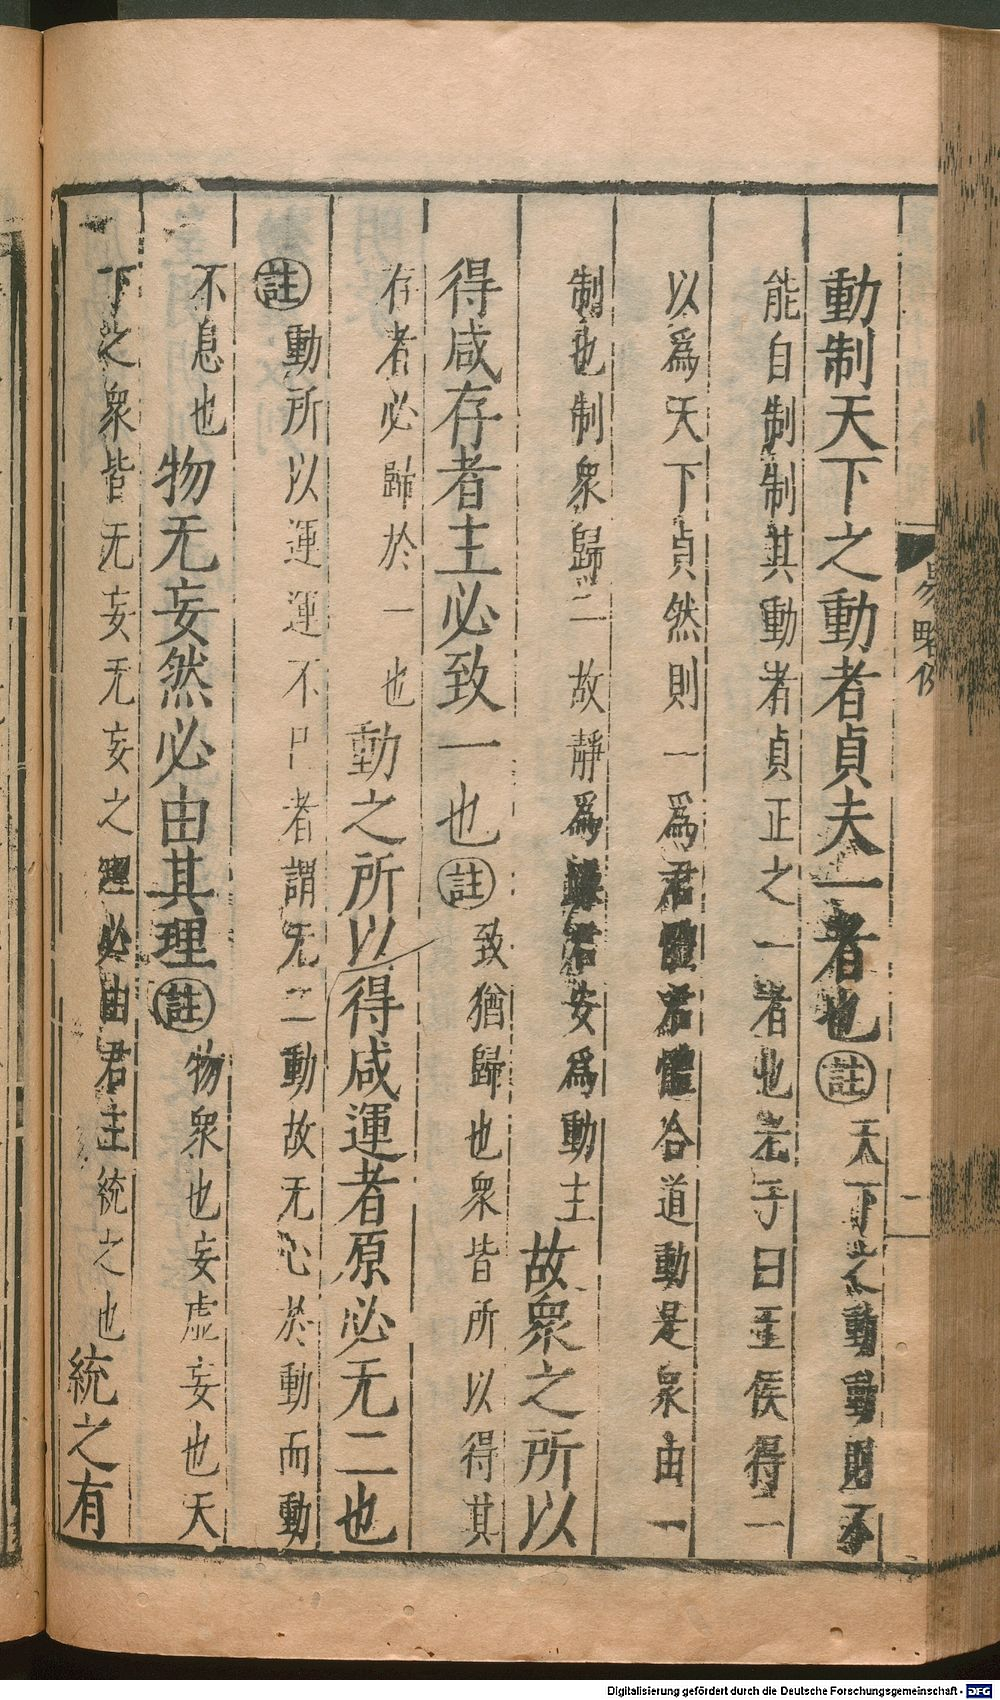 動制天下之動者貞夫一者也註天下之動動則不
能自制制其動者貞正之一者也老子曰王侯得一
以爲天下貞然則一爲君體君體合道動是衆由一
制也制衆歸一故靜爲躁君安爲動主故衆之所以
得咸存者主必致一也註致猶歸也衆皆所以得其
存者必歸於一也動之所以得咸運者原必无二也
註動所以運運不已者謂无二動故无心於動而動
不息也物无妄然必由其理註物衆也妄虛妄也天
下之衆皆无妄无妄之理必由君主統之也統之有
易略例
二
Digitalisierung gefördert durch die Deutsche Forschungsgemeinschaft - DFG